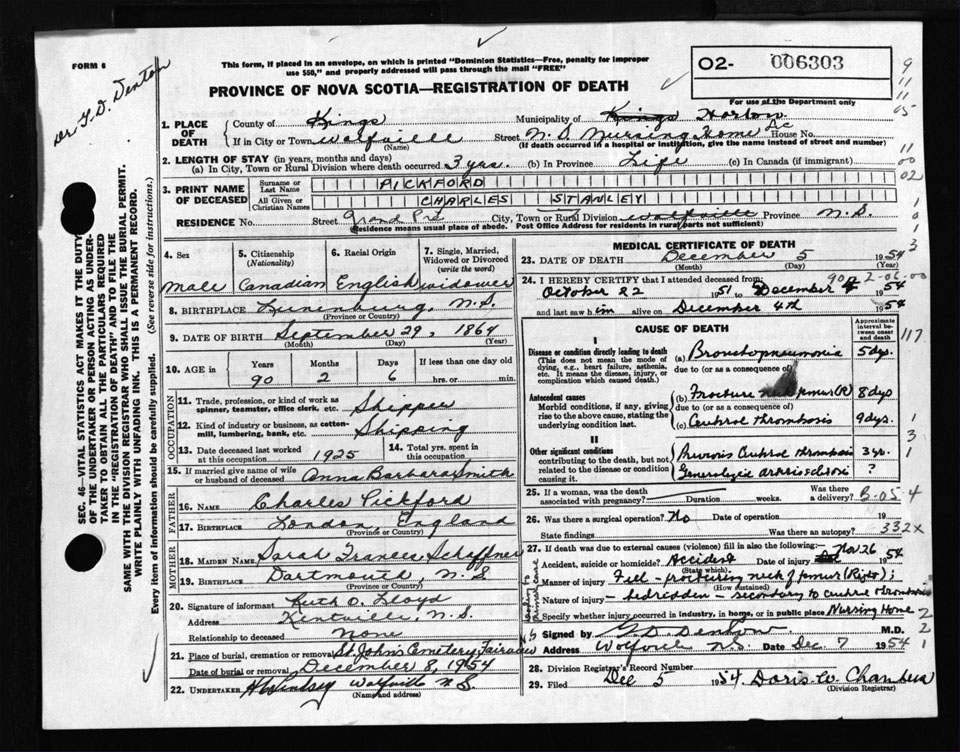 FORM 6
Dr. G. D. Denton
This form, if placed in an envelope, on which is printed "Dominion Statistics—Free, penalty for improper
use $50," and properly addressed will pass through the mail "FREE"
PROVINCE OF NOVA SCOTIA—REGISTRATION OF DEATH
02- 006303
For use of the Department only
1. PLACE OF DEATH
County of Kings Municipality of Kings Horton
If in City or Town Wolfville Street N.S. Nursing Home House No.
(Name) (If death occurred in a hospital or institution, give the name instead of street and number)
2. LENGTH OF STAY (in years, months and days)
(a) In City, Town or Rural Division where death occurred 3 yrs. (b) In Province Life (c) In Canada (if immigrant)
3. PRINT NAME OF DECEASED
Surname or Last Name PICKFORD
All Given or Christian Names CHARLES STANLEY
RESIDENCE No. Street Grand Pré City, Town or Rural Division Wolfville Province N.S.
(Residence means usual place of abode. Post Office Address for residents in rural parts not sufficient)
4. Sex Male
5. Citizenship (Nationality) Canadian
6. Racial Origin English
7. Single, Married, Widowed or Divorced (write the word) widower
8. BIRTHPLACE Lunenburg, N.S.
(Province or Country)
9. DATE OF BIRTH September 29, 1864
(Month) (Day) (Year)
10. AGE in Years Months Days If less than one day old
90 2 6 hrs. or min.
OCCUPATION
11. Trade, profession or kind of work as spinner, teamster, office clerk, etc. Shipper
12. Kind of industry or business, as cotton-mill, lumbering, bank, etc. Shipping
13. Date deceased last worked at this occupation 1925
14. Total yrs. spent in this occupation
15. If married give name of wife or husband of deceased Anna Barbara Smith
FATHER
16. NAME Charles Pickford
17. BIRTHPLACE London, England
(Province or Country)
MOTHER
18. MAIDEN NAME Sarah Frances Schaffner
19. BIRTHPLACE Dartmouth, N.S.
(Province or Country)
20. Signature of informant Ruth O. Lloyd
Address Kentville, N.S.
Relationship to deceased None
21. Place of burial, cremation or removal St. John's Cemetery, Fairview
Date of burial or removal December 8, 1954
22. UNDERTAKER H W Lindsey Wolfville N.S.
(Name and address)
MEDICAL CERTIFICATE OF DEATH
23. DATE OF DEATH December 5 1954
(Month) (Day) (Year)
24. I HEREBY CERTIFY that I attended deceased from:
October 22 1951 to December 4 1954
and last saw him alive on December 4th 1954
CAUSE OF DEATH
Approximate interval between onset and death
I
Disease or condition directly leading to death
(This does not mean the mode of dying, e.g., heart failure, asthenia, etc. It means the disease, injury, or complication which caused death.)
(a) Bronchopneumonia 5 dys.
due to (or as a consequence of)
Antecedent causes
Morbid conditions, if any, giving rise to the above cause, stating the underlying condition last.
(b) Fracture neck femur (R) 8 dys
due to (or as a consequence of)
(c) Cerebral thrombosis 9 dys.
II
Other significant conditions
contributing to the death, but not related to the disease or condition causing it.
Previous Cerebral thrombosis 3 yrs.
Generalized arteriosclerosis ?
25. If a woman, was the death associated with pregnancy? Duration weeks. Was there a delivery?
26. Was there a surgical operation? No Date of operation 19
State findings Was there an autopsy?
332x
27. If death was due to external causes (violence) fill in also the following:—
Accident, suicide or homicide? Accident Date of injury Nov 26 1954
(State which).
Manner of injury Fell - fracturing neck of femur (Right);
(How sustained)
Nature of injury - bedridden - secondary to cerebral thrombosis
Specify whether injury occurred in industry, in home, or in public place Nursing Home
Signed by G. D. Denton M.D.
Address Wolfville N.S. Date Dec 7 1954
28. Division Registrar's Record Number
29. Filed Dec 5 1954. Doris W. Chambers
(Division Registrar)
SEC. 46—VITAL STATISTICS ACT MAKES IT THE DUTY
OF THE UNDERTAKER OR PERSON ACTING AS UNDER-
TAKER TO OBTAIN ALL THE PARTICULARS REQUIRED
IN THE "REGISTRATION OF DEATH" AND TO FILE THE
SAME WITH THE DIVISION REGISTRAR WHO SHALL ISSUE THE BURIAL PERMIT.
WRITE PLAINLY WITH UNFADING INK. THIS IS A PERMANENT RECORD.
Every item of information should be carefully supplied. (See reverse side for instructions.)